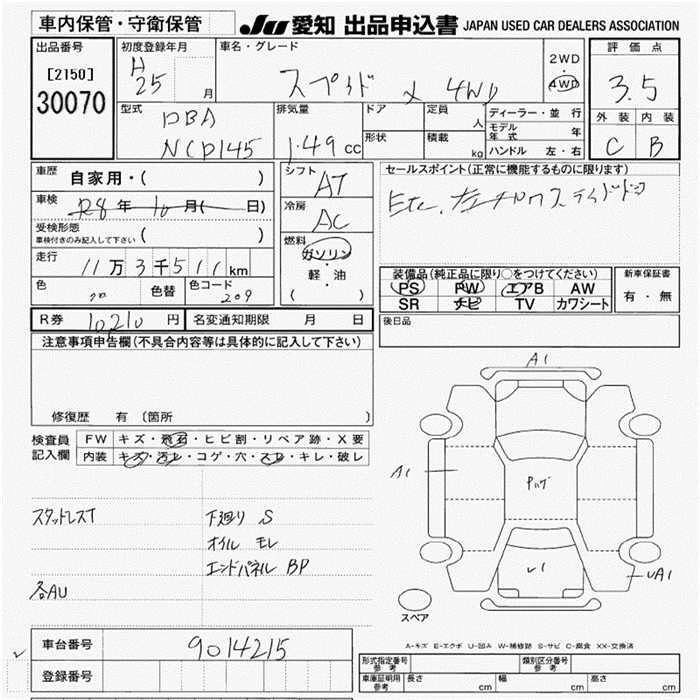 車内保管・守衛保管
JU 愛知 出品申込書 JAPAN USED CAR DEALERS ASSOCIATION
出品番号
[2150]
30070
初度登録年月
H
25 月
車名・グレード
4WD
2WD
・
4WD
評価点
3.5
外装 内装
C B
型式
DBA
NCP145
排気量
1.49 cc
ドア
形状
定員
人
積載
kg
ディーラー・並行
モデル年式 年
ハンドル 左・右
車歴
自家用・( )
車検
R8 年 10 月( 日)
受検形態
車検付きのみ記入して下さい ( )
走行
11万3千511km
色
クロ
色替
色コード
209
シフト
AT
冷房
AC
燃料
ガソリン
・
軽・油
( )
セールスポイント(正常に機能するものに限ります)
Etc.
装備品(純正品に限り○をつけてください)
PS PW エアB AW
SR ナビ TV カワシート
新車保証書
有・無
後日品
R券 10210 円
名変通知期限 月 日
注意事項申告欄(不具合内容等は具体的に記入して下さい)
修復歴 有 〔箇所 〕
検査員
記入欄
FW キズ・飛石・ヒビ割・リペア跡・X要
内装 キズ・汚レ・コゲ・穴・スレ・キレ・破レ
スタッドレスT
各AU
下廻り S
オイル モレ
エンドパネル BP
A1
A1
ν1
νA1
スペア
A-キズ E-エクボ U-凹み W-補修跡 S-サビ C-腐食 XX-交換済
車台番号
9014215
登録番号
形式指定番号
参考
類別区分番号
参考
車庫証明用
参考
長さ cm
幅 cm
高さ cm